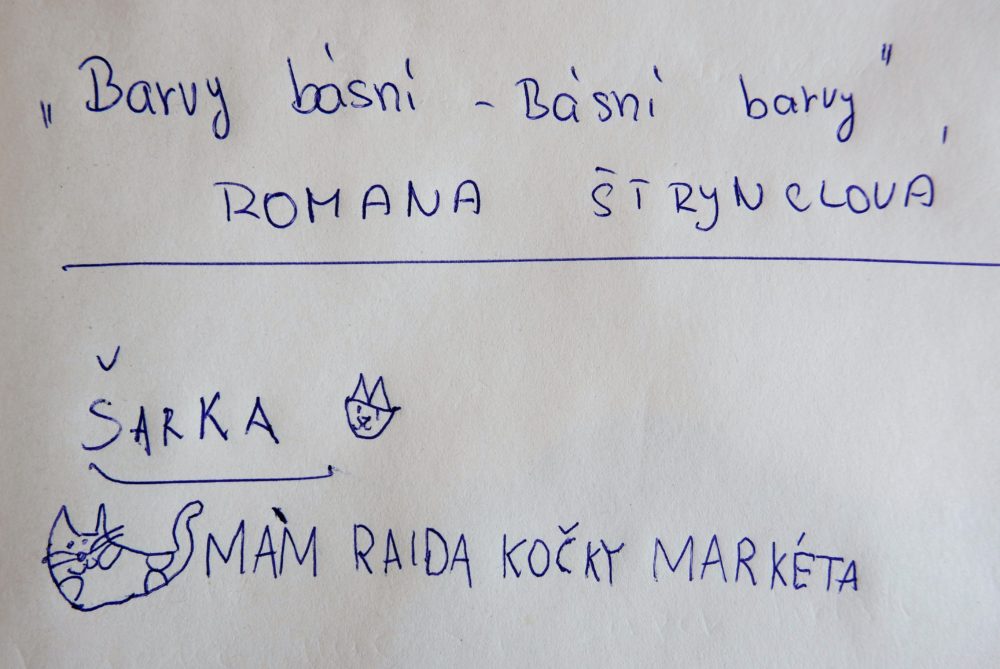 „Barvy básní - Básní barvy"
ROMANA ŠTRYNCLOVÁ
ŠARKA
MÀM RAIDA KOČKY MARKÉTA